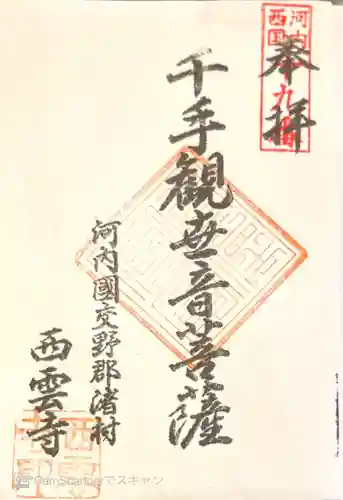 奉拝
河内
西国
九番
千手觀世音菩薩
河内國交野郡渚村
西雲寺
CamScannerでスキャン